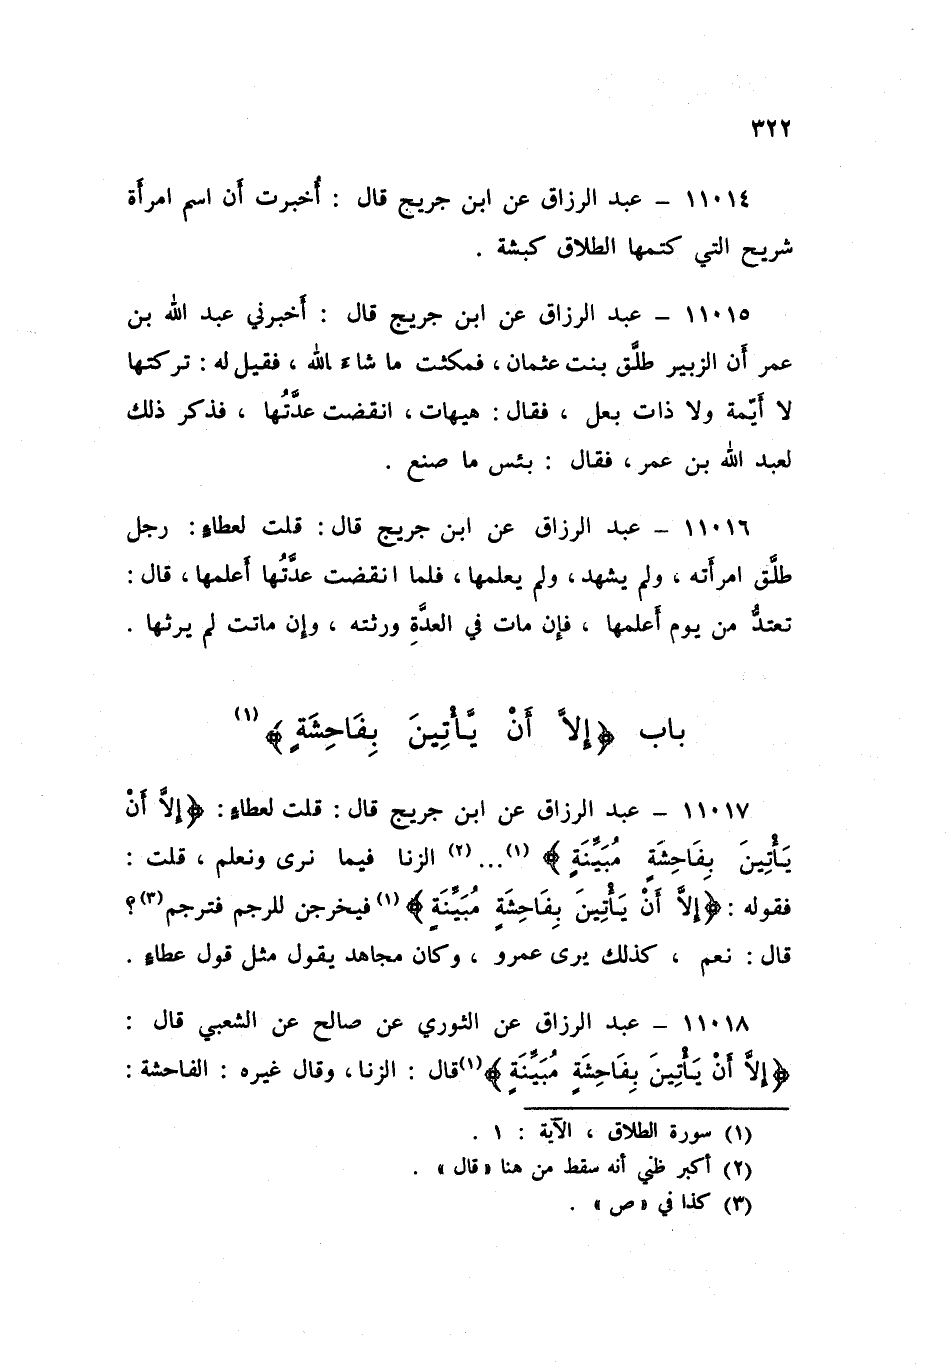 ٣٢٢
١١٠١٤ – عبد الرزاق عن ابن جريج قال : أُخبرت أَن اسم امرأَة
شريح التي كتمها الطلاق كبشة .
١١٠١٥ – عبد الرزاق عن ابن جريج قال : أَخبرني عبد الله بن
عمر أَن الزبير طلَّق بنت عثمان ، فمكثت ما شاءَ الله ، فقيل له : تركتها
لا أَيّمة ولا ذات بعل ، فقال : هيهات ، انقضت عدَّتُها ، فذكر ذلك
لعبد الله بن عمر ، فقال : بئس ما صنع .
١١٠١٦ – عبد الرزاق عن ابن جريج قال : قلت لعطاءٍ : رجل
طلَّق امرأَته ، ولم يشهد ، ولم يعلمها ، فلما انقضت عدَّتُها أَعلمها ، قال :
تعتدُّ من يوم أَعلمها ، فإن مات في العدَّةِ ورثته ، وإن ماتت لم يرثها .
باب ﴿إِلاَّ أَنْ يَّأْتِينَ بِفَاحِشَةٍ﴾ (١)
١١٠١٧ – عبد الرزاق عن ابن جريج قال : قلت لعطاءٍ : ﴿إِلاَّ أَنْ
يَأْتِينَ بِفَاحِشَةٍ مُبَيِّنَةٍ﴾ (١)... (٢) الزنا فيما نرى ونعلم ، قلت :
فقوله : ﴿إِلاَّ أَنْ يَأْتِينَ بِفَاحِشَةٍ مُبَيِّنَةٍ﴾ (١) فيخرجن للرجم فترجم(٣)؟
قال : نعم ، كذلك يرى عمرو ، وكان مجاهد يقول مثل قول عطاءٍ .
١١٠١٨ – عبد الرزاق عن الثوري عن صالح عن الشعبي قال :
﴿إِلاَّ أَنْ يَأْتِينَ بِفَاحِشَةٍ مُبَيِّنَةٍ﴾(١)قال : الزنا ، وقال غيره : الفاحشة :
(١) سورة الطلاق ، الآية : ١ .
(٢) أكبر ظني أنه سقط من هنا « قال » .
(٣) كذا في « ص » .